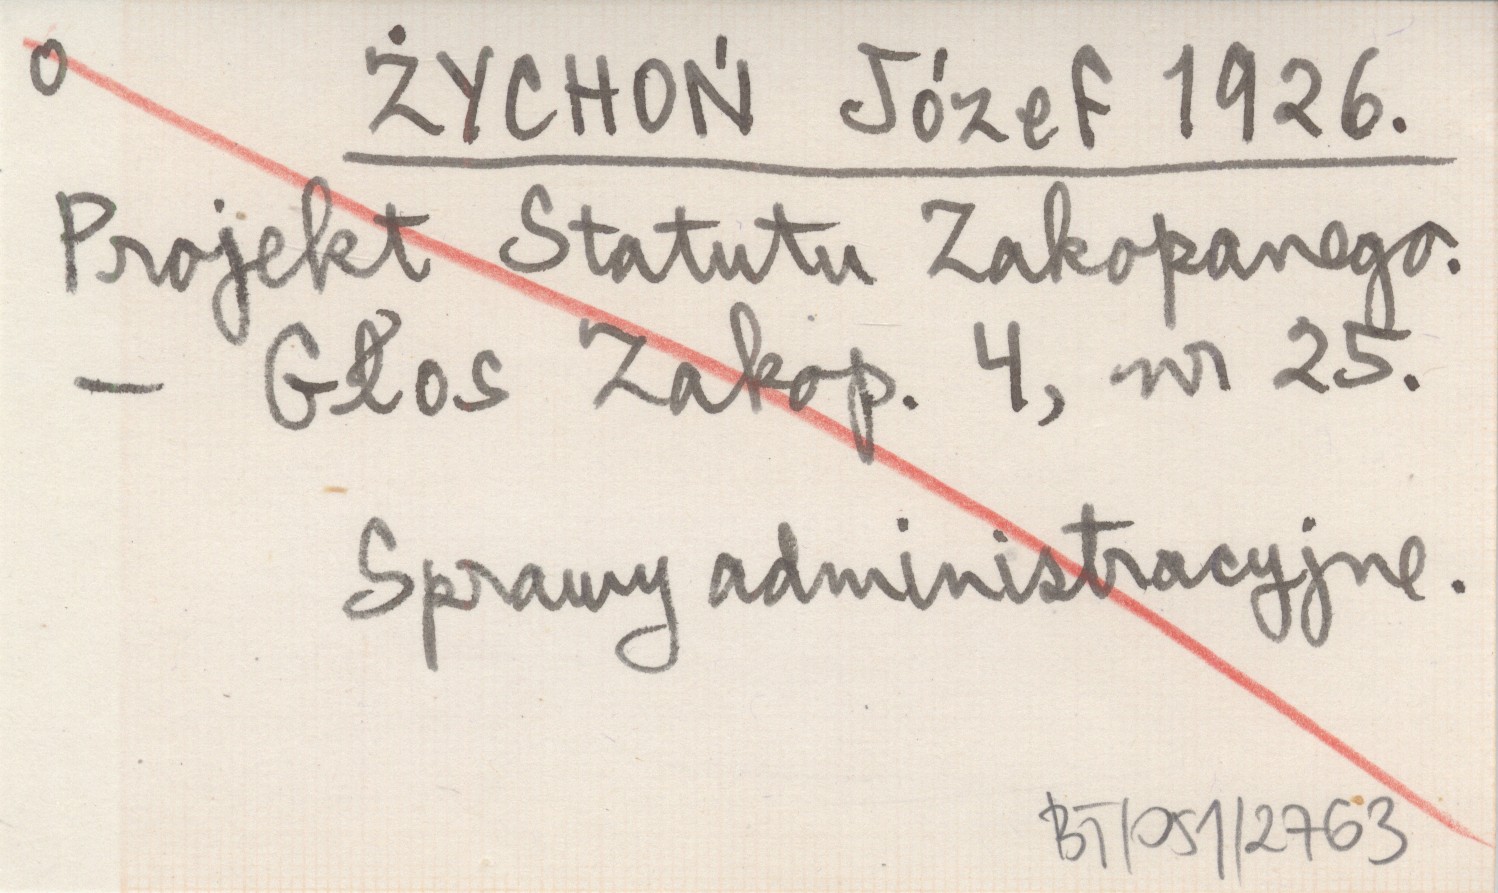 o ŻYCHOŃ Józef 1926.
Projekt Statutu Zakopanego.
— Głos Zakop. 4, nr 25.
Sprawy administracyjne.
BT/051/2763